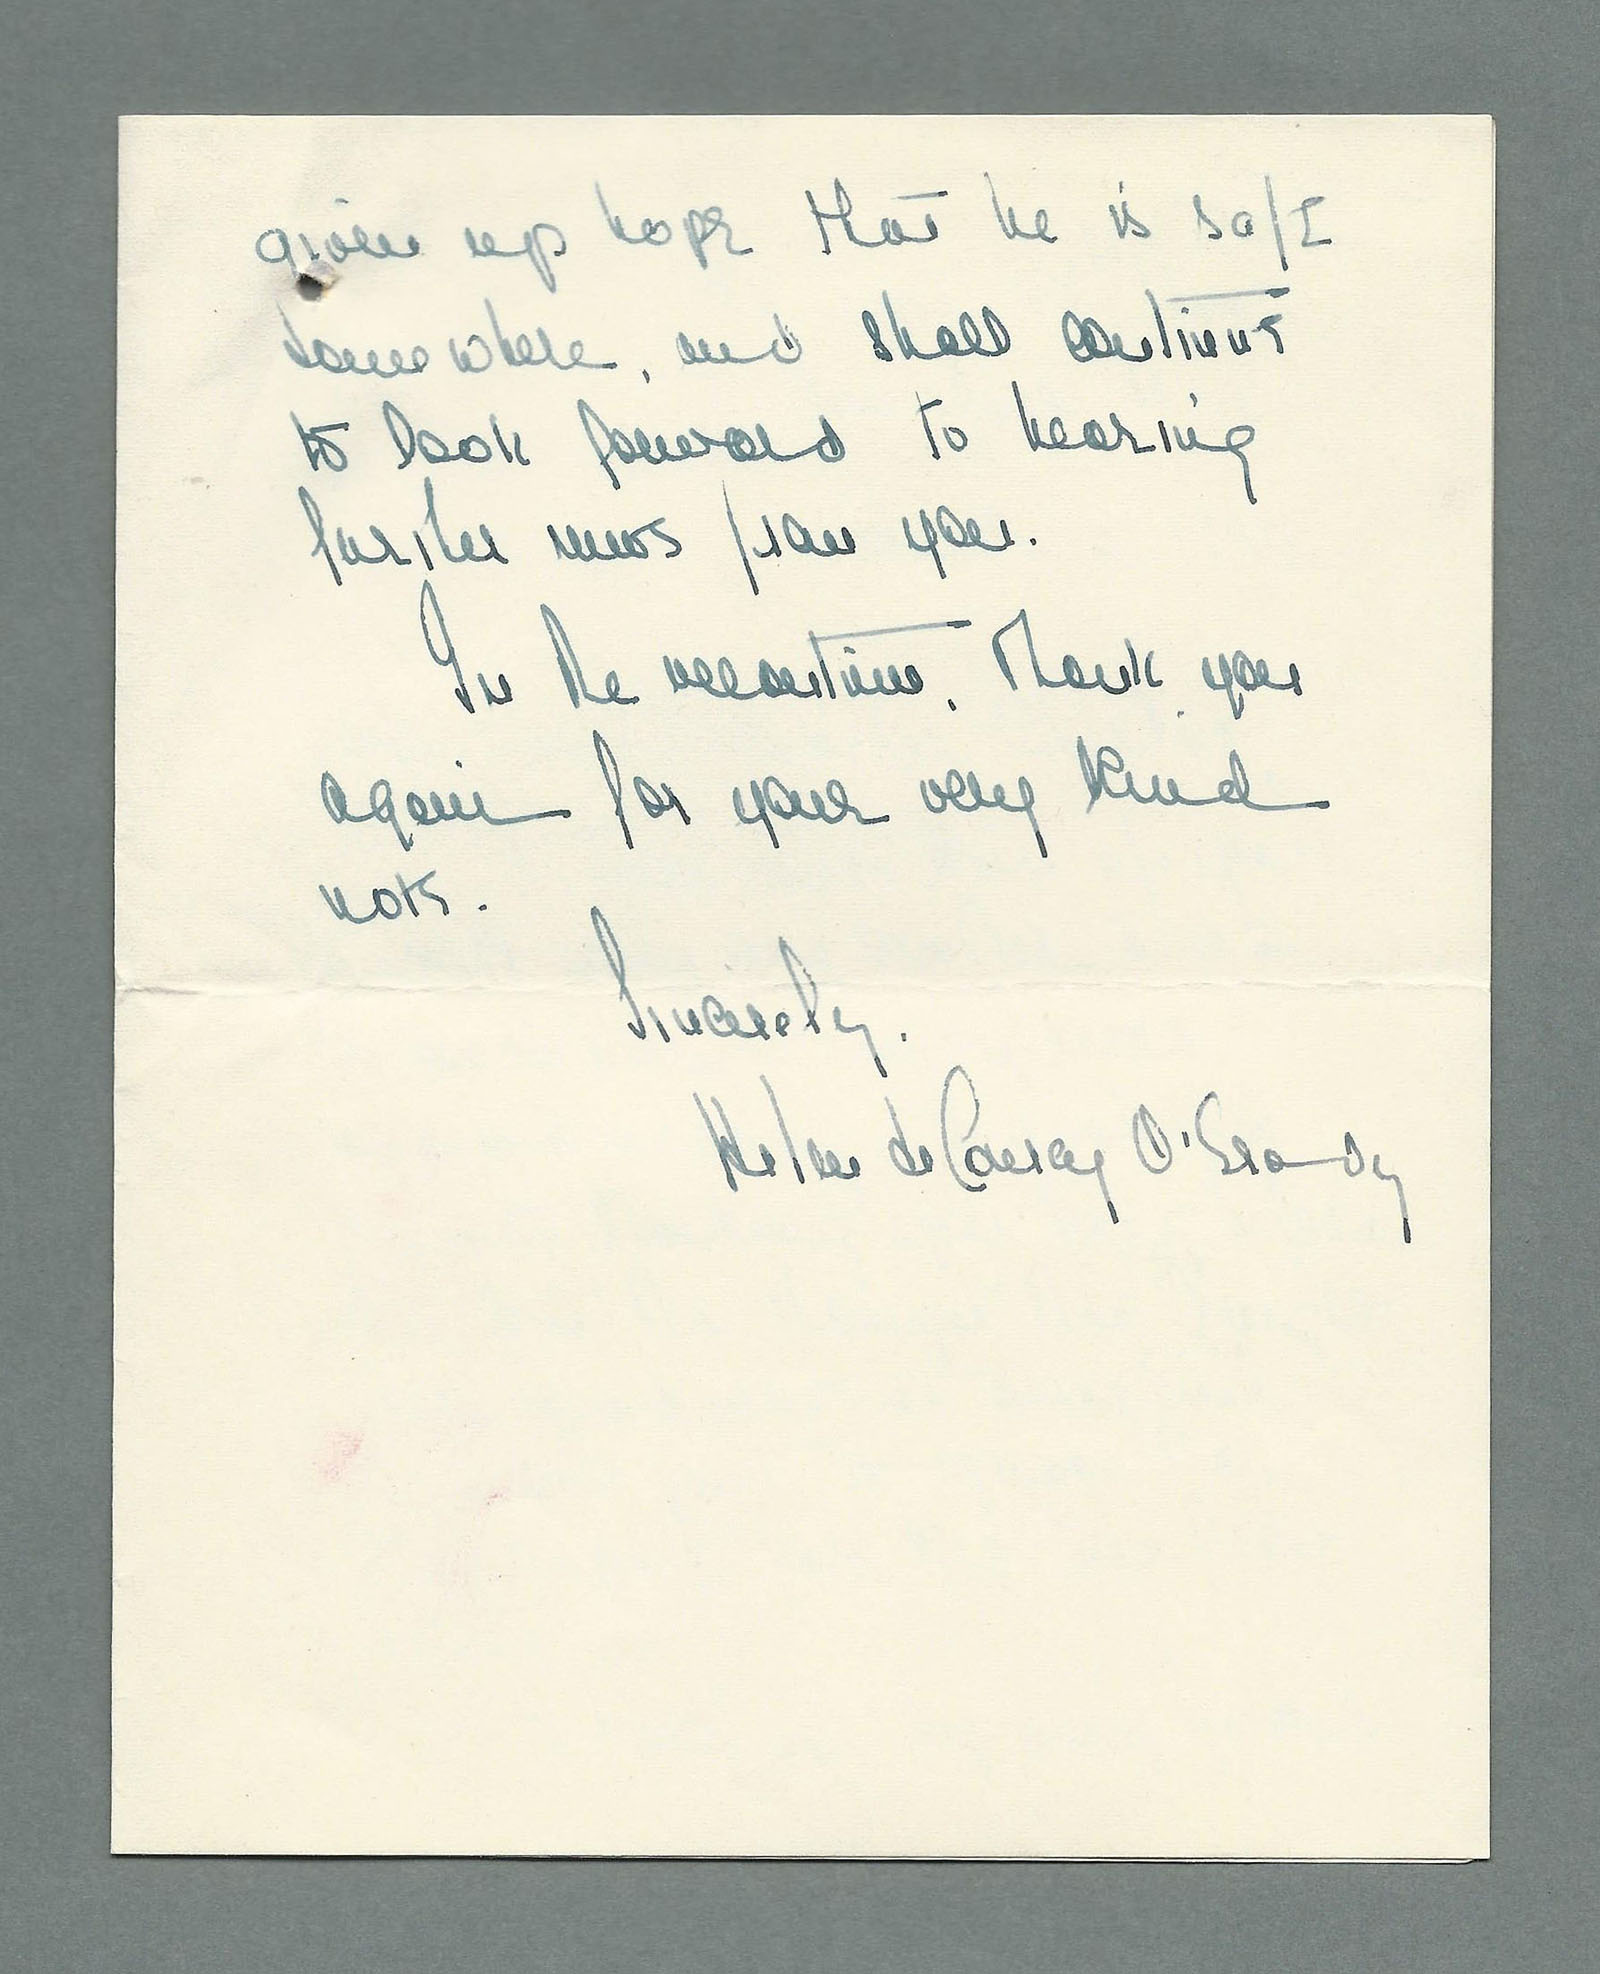 given up hope that he is safe
somewhere, and shall continue
to look forward to hearing
further news from you.
In the meantime, thank you
again for your very kind
note.
Sincerely,
Helen de Courcy O'Grady